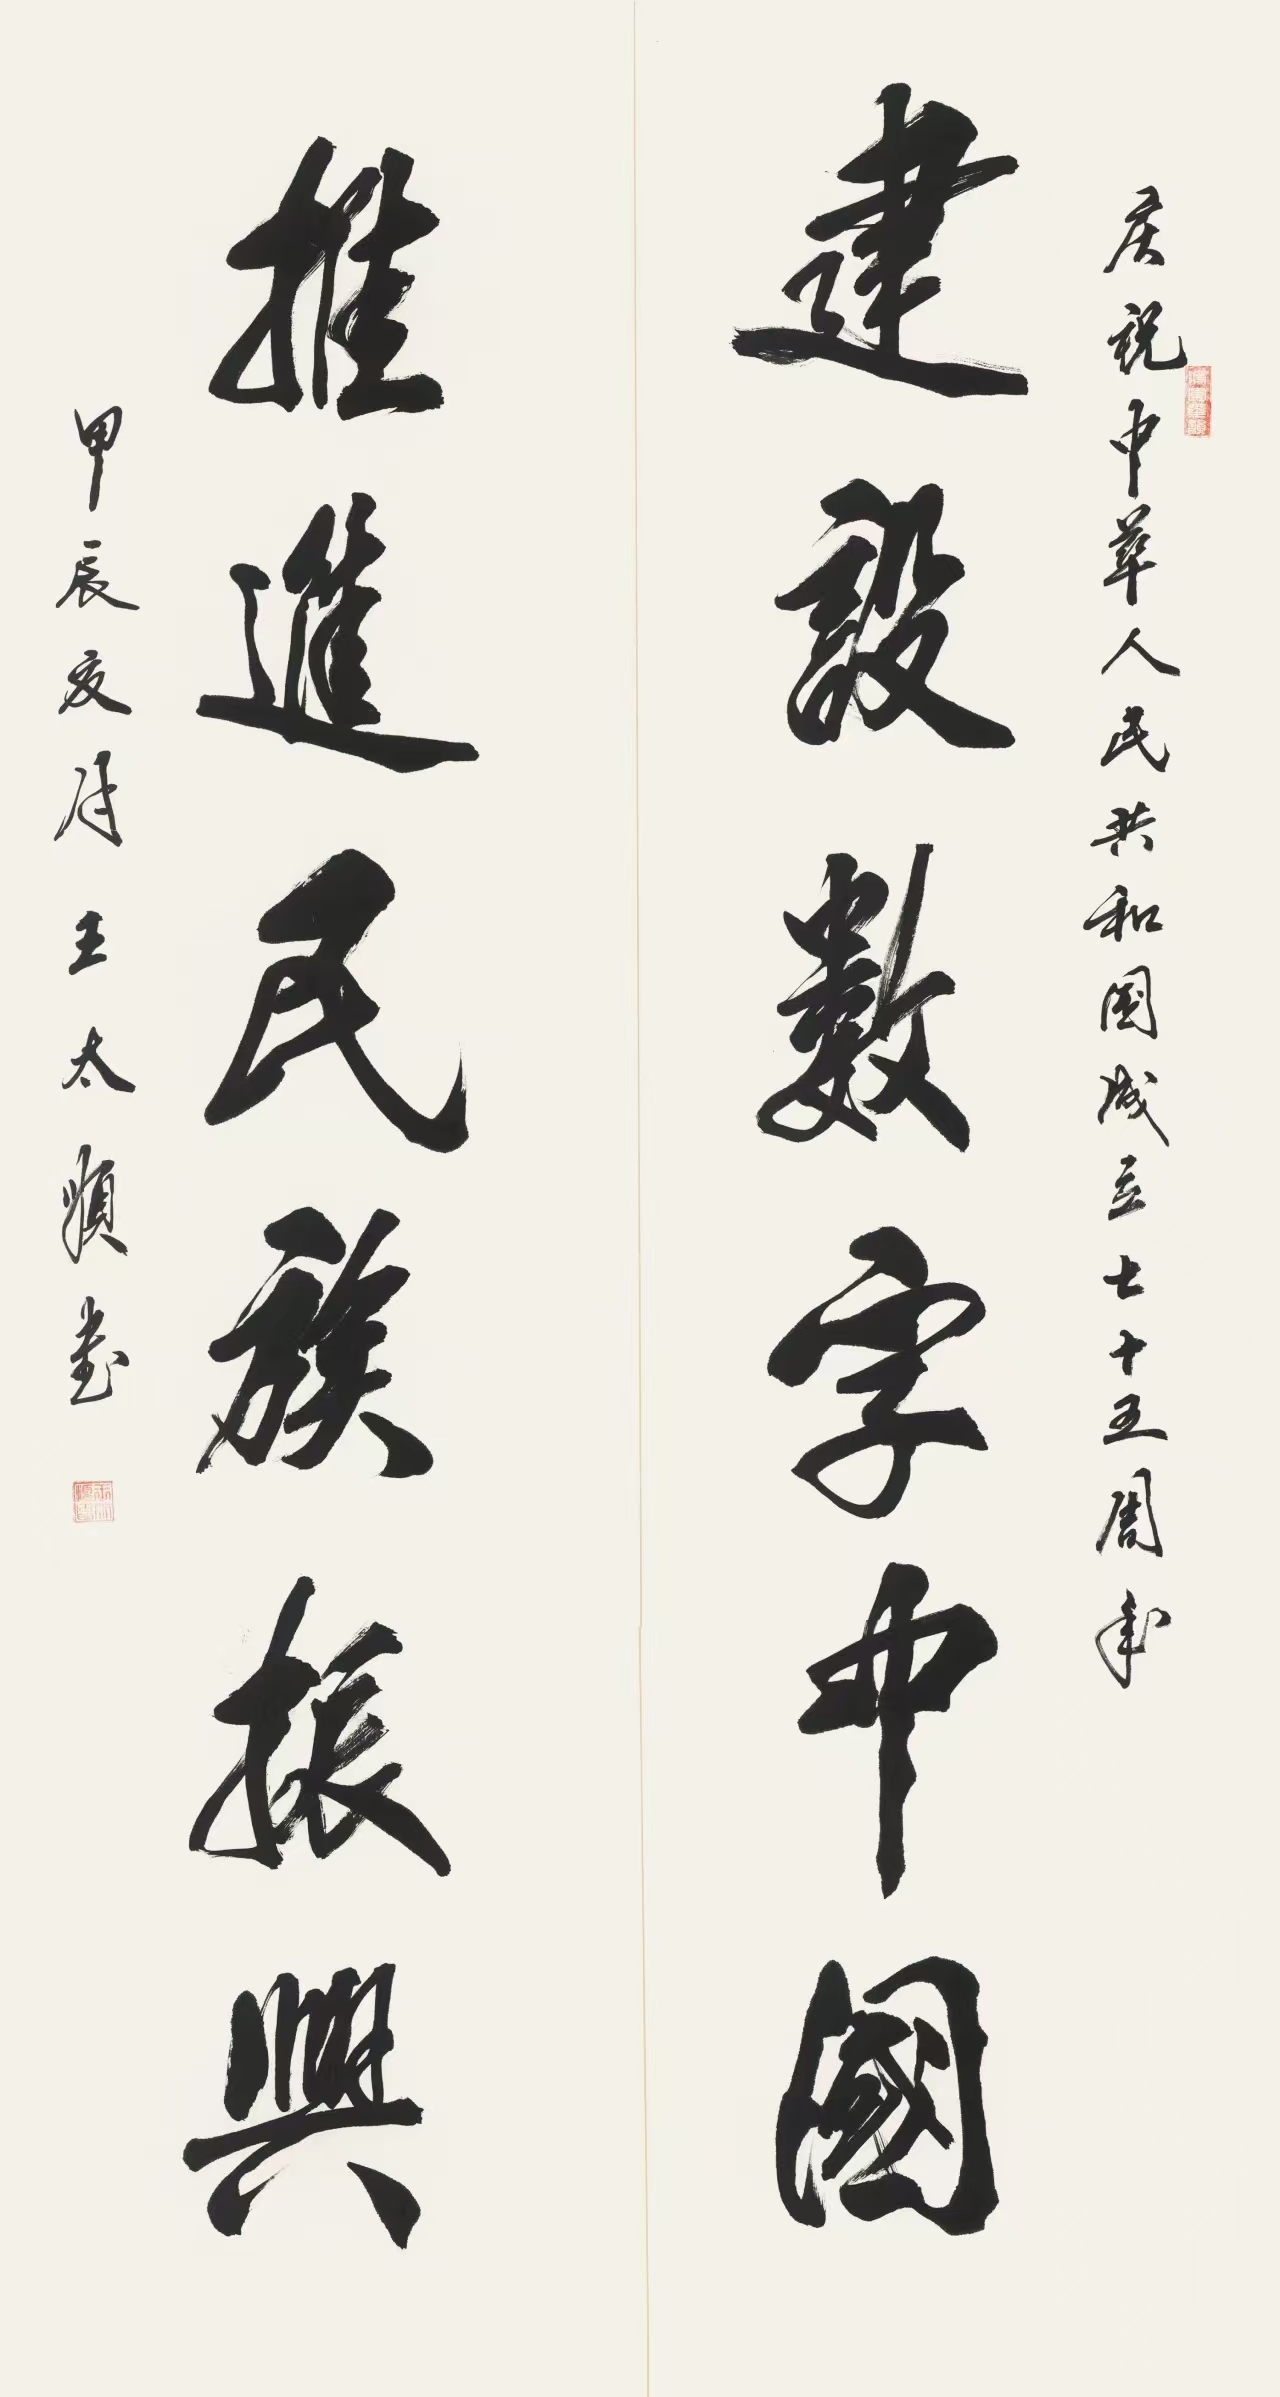 庆祝中华人民共和国成立七十五周年
建設數字中國
推進民族振興
甲辰夏月王太順書